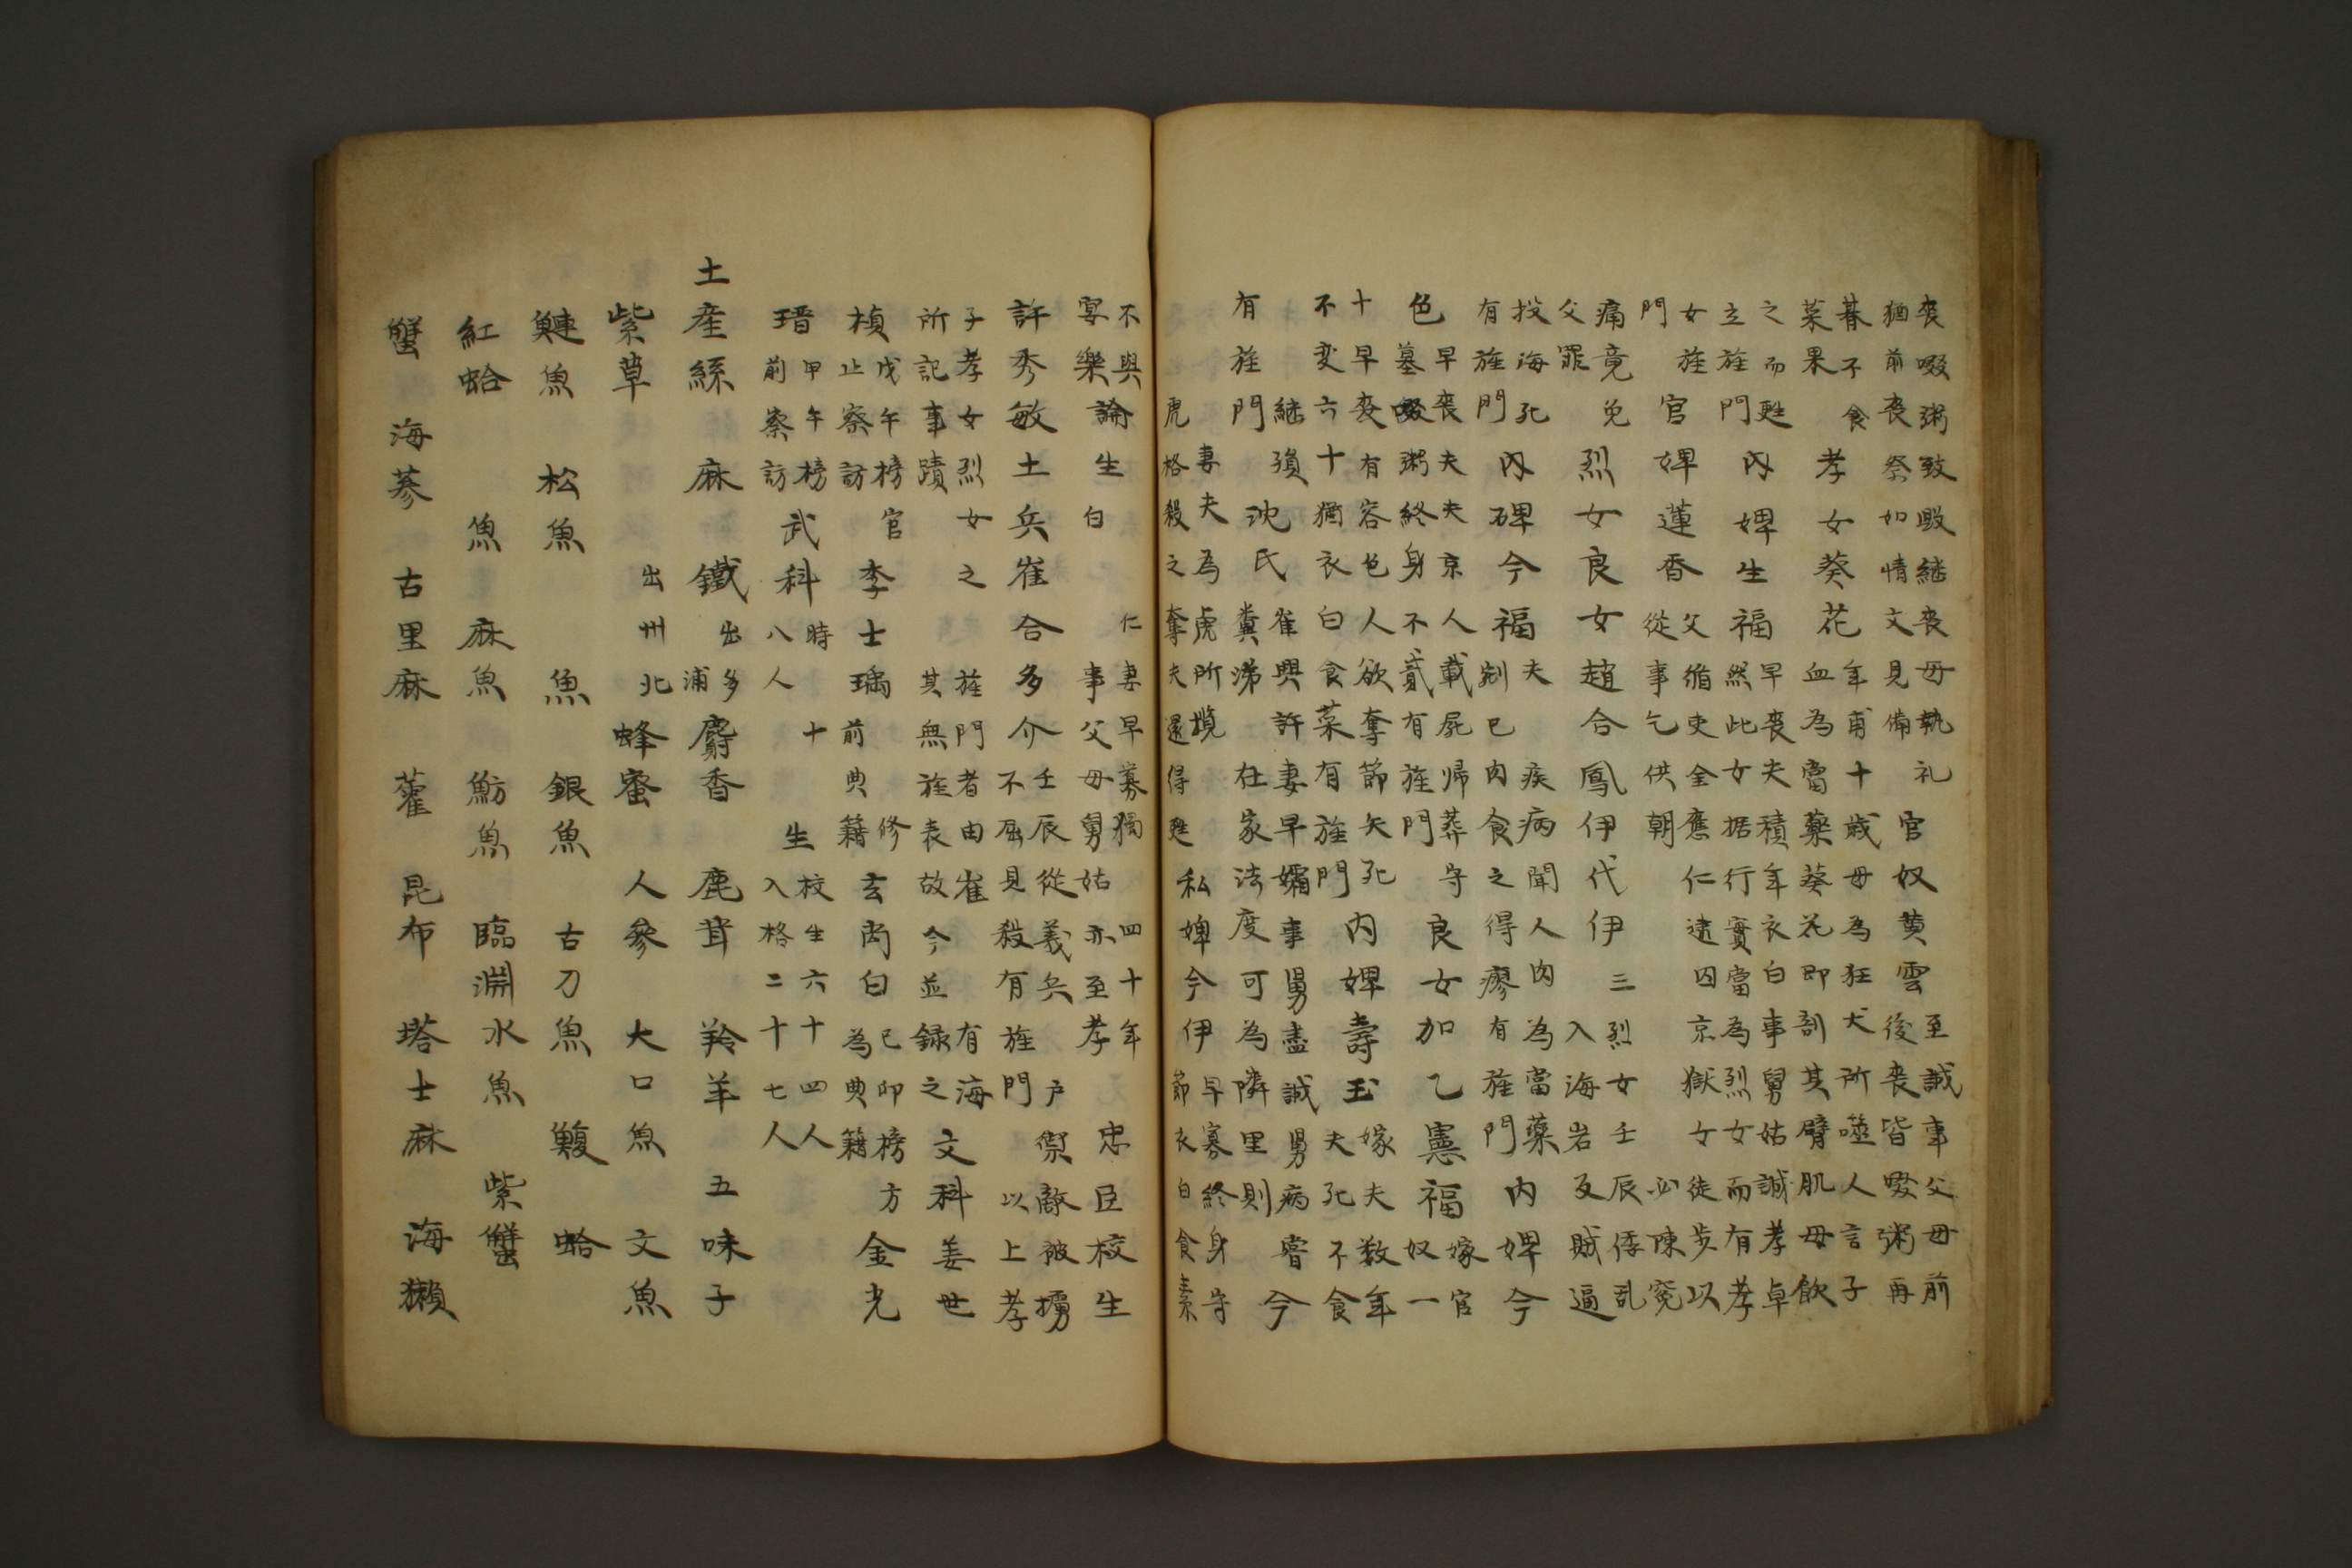 喪啜粥致毀継喪母執礼
猶前喪祭如情文見備
官奴黄雲
至誠事父母前
後喪皆啜粥再
朞不食
菜果
孝女葵花
年甫十歳母為狂犬所噬人言子
血為當藥葵花即割其臂肌母飲
之而甦
立旌門
内婢生福
早喪夫積年衣白事舅姑誠孝卓
然此女据行實當為烈女而有孝
女旌
門
官婢蓮香
父循吏全應仁逮囚京獄女徒步以
從事乞供朝必陳寃
痛竟免
父罪
烈女良女趙合鳳伊代伊三
烈女壬辰倭乱
入海岩及賊逼
投海死
有旌門
内碑今福
夫疾病聞人肉為當藥
割已肉食之得瘳有旌門
内婢今
色
早喪夫夫京人載屍帰葬守
墓啜粥終身不貳有旌門
良女加乙憲福
嫁官
奴一
十早丧有容色人欲奪節矢死
不変六十猶衣白食菜有旌門
内婢壽玉
嫁夫数年
夫死不食
継殞
有旌門
沈氏
崔興許妻早孀事舅盡誠舅病嘗
糞涕在家法度可為隣里則
今
虎
妻夫為虎所攬
格殺之奪夫還得甦
私婢今伊
早寡終身守
節衣白食素
不與
宴樂
論生
白仁妻早寡獨四十年
事父母舅姑亦至孝
忠臣校生
許秀敏土兵崔合多介
壬辰從義兵戸禦敵被擄
不屈見殺有旌門以上孝
子孝女烈女之旌門者由崔有海
所記事蹟其無旌表故今並録之
文科姜世
楨
戊午榜官
止察訪
李士瑀
修
前典籍
玄尚白
已卯榜
為典籍
方金光
瑨
甲午榜
前察訪
武科
時十
八人
生
校生六十四人
入格二十七人
土産絲 麻 鐵
出多
浦
麝香 鹿茸 羚羊 五味子
紫草
出州北
蜂蜜 人參 大口魚 文魚
鰱魚 松魚 魚 銀魚 古刀魚 鰒 蛤
紅蛤 魚 麻魚 魴魚 臨淵水魚 紫蟹
蟹 海蔘 古里麻 藿 昆布 塔士麻 海獺